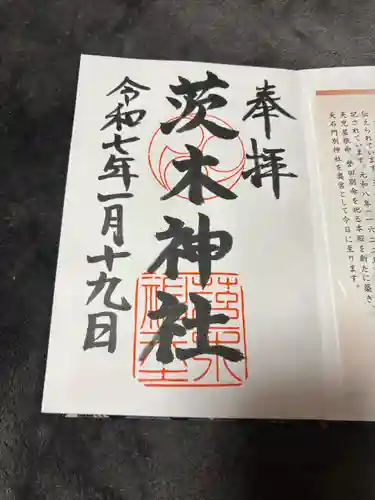 奉拝
茨木神社
令和七年一月十九日
茨木
神社
伝えられています。
記されています。元和八年(一六二二
天児屋根命 誉田別命を祀る本殿を新たに築き、
天石門別神社を奥宮として今日に至ります。